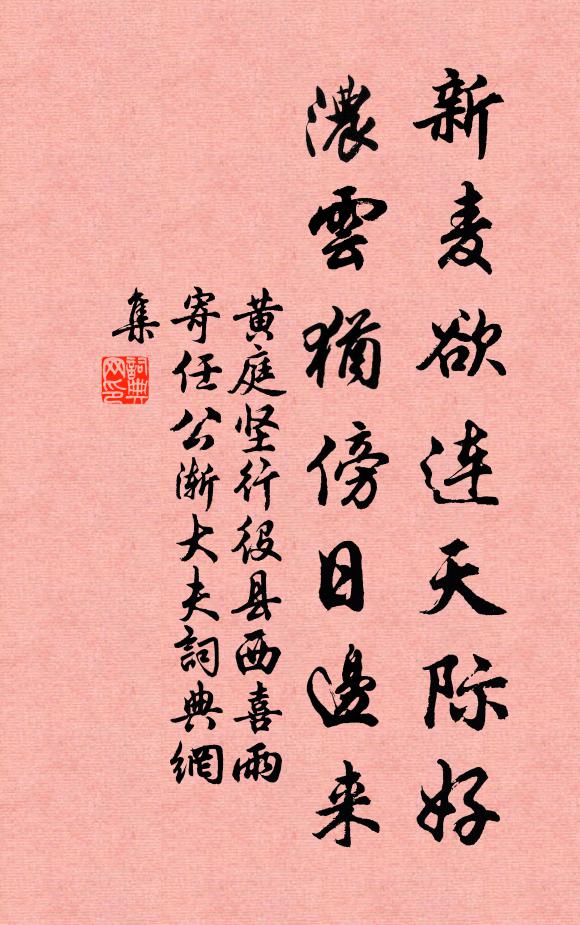 新麦欲连天际好
濃雲猶傍日邊来
黄庭坚行役县西喜雨
寄任公渐大夫詞典網
集
詞典網印